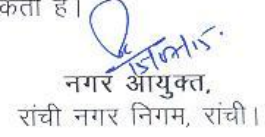 कता है।
15/07/15.
नगर आयुक्त,
रांची नगर निगम, रांची।